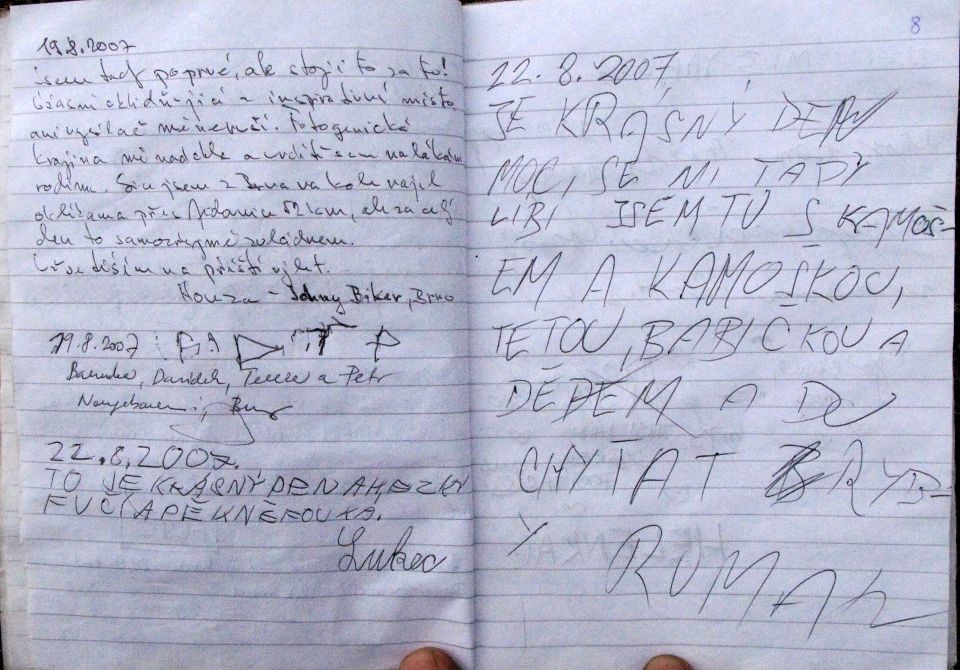 19.8.2007
jsem tady poprvé, ale stojí to za to!
Úžasně uklidňující a inspirativní místo
ani vysílač mě neruší. Fotogenická
krajina mě nadchla a určitě sem nalákám
rodinu. Sice jsem z Brna na kole najel
oklikama přes 52 km, ale za celý
den to samozřejmě zvládnem.
Už se těším na příští výlet.
Honza - Johny Biker, Brno
19.8.2007 BA D T P
Barunka, Davídek, Tereza a Petr
22.8.2007.
TO JE KRÁSNÝ DEN A HEZKY
FUČÍ A PĚKNĚ FOUKÁ.
Lukec
8
22.8.2007
JE KRÁSNÝ DEN
MOC, SE MI TADY
LÍBÍ JSEM TU S KAMOŠ-
EM A KAMOŠKOU,
TETOU, BABIČKOU A
DĚDEM A DU
CHYTAT RYB-
Y
ROMAN